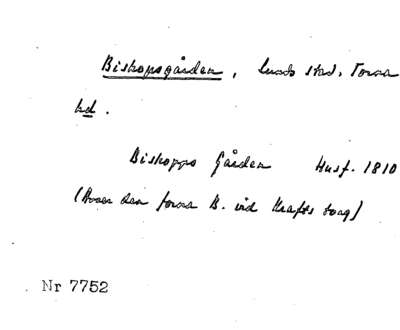 Biskopsgården, Lunds stad, Torna
hd.
Biskopps Gården Husf. 1810
(Avser den förra B. vid Krafts torg)
Nr 7752